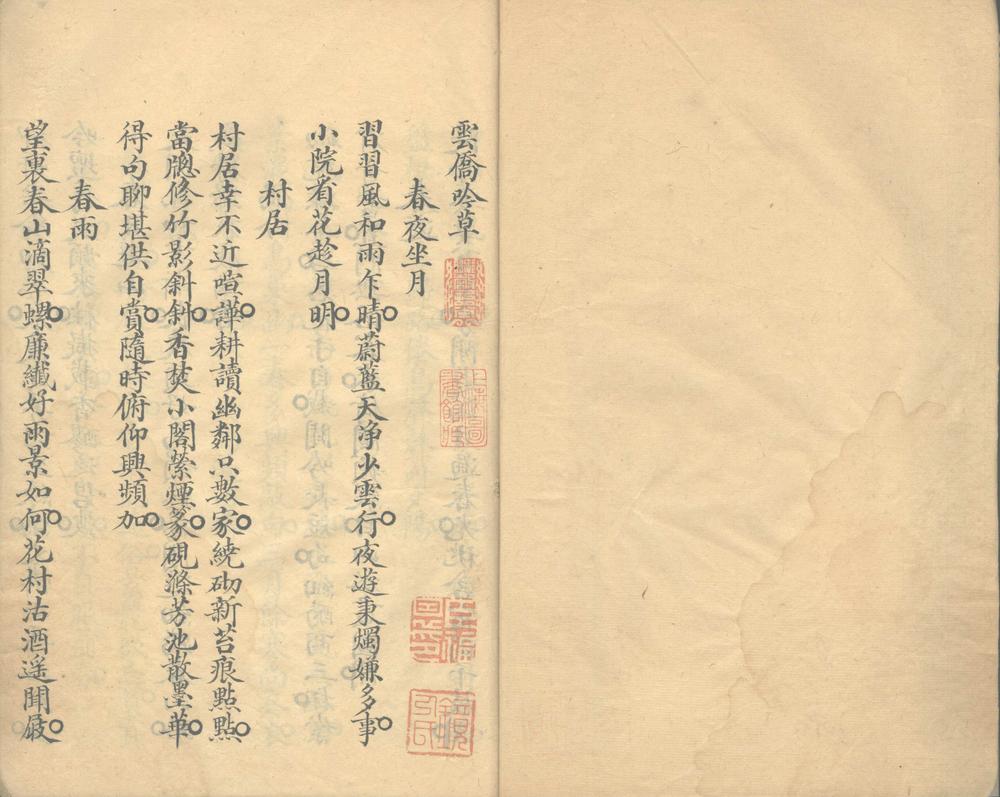 雲僑吟草
春夜坐月
習習風和雨乍晴蔚藍天净少雲行夜遊秉燭嫌多事
小院看花趁月明
村居
村居幸不近喧譁耕讀幽鄰只數家繞砌新苔痕點點
當牕修竹影斜斜香焚小閣縈煙篆硯滌芳池散墨華
得句聊堪供自賞隨時俯仰興頻加
春雨
望裏春山滴翠螺廉纖好雨景如何花村沽酒遥聞屐